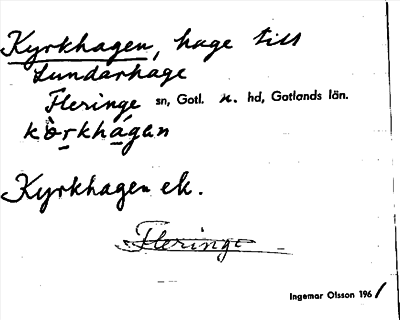 Kyrkhagen, hage till
Sundarhage
Fleringe sn, Gotl. n. hd, Gotlands län.
kò̱rkhága̱n
Kyrkhagen ek.
Fleringe
Ingemar Olsson 1961